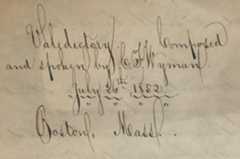 Valedictory Composed
and spoken by C. F. Wyman
July 26th 1882
Boston, Mass.